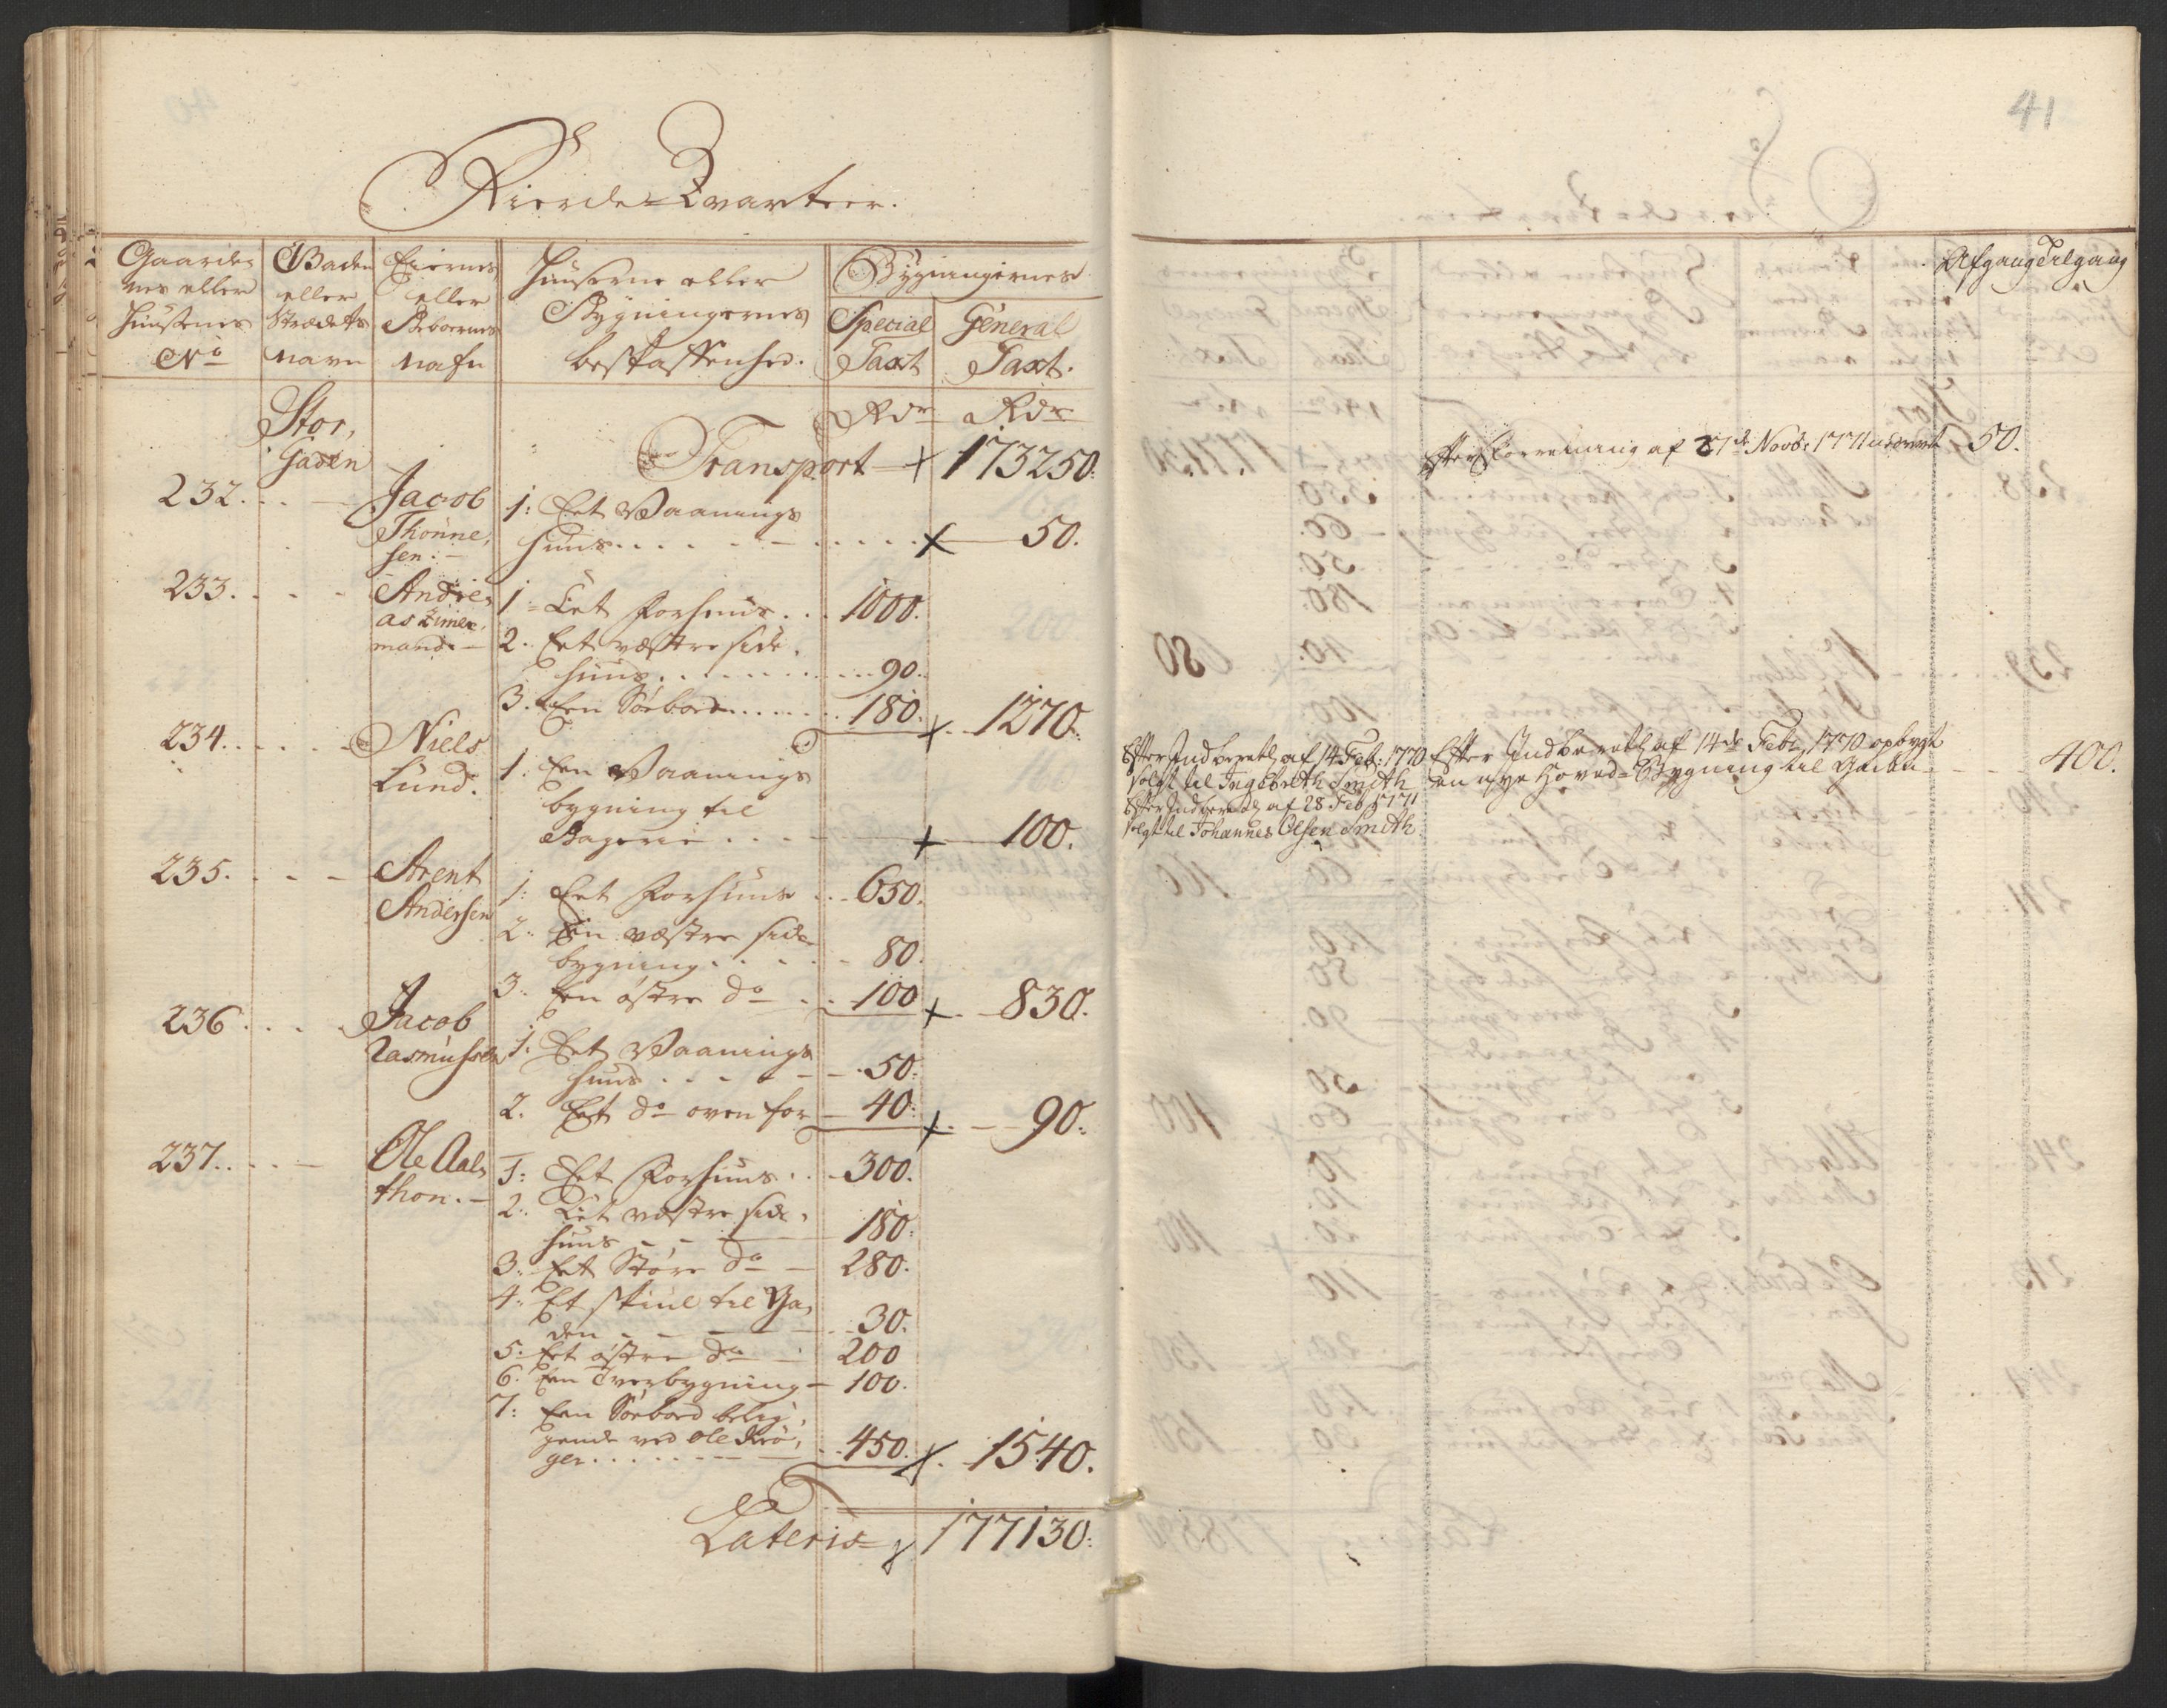 Kierde=Qvarteer.
Gaarde-
nes eller
Huusenes
No
Gaden
eller
Strædets
navn
Eiernes
eller
Beboernes
nafn
Huuserne eller
Bygningernes
beskaffenhed.
Bygningernes
Special
Taxt
General
Taxt.
Rdr Rdr
Stor,
Gaden
Transport + 173250.
232. Jacob
Thonne,
sen.
1: Eet Vaanings
Huus + 50.
233. Andre,
as Zimer,
mand.
1. Eet Forhuus 1000.
2. Eet væstre side,
huus 90.
3. Een Søebod 180. + 1270.
234. Niels
Lund.
1. Een Vaanings
bygning til
Bagerie + 100.
235. Arent
Andersen
1: Eet Forhuus 650.
2. Een væstre side
bygning 80.
3. Een østre do 100 + 830.
236. Jacob
Rasmussen
1. Eet Vaanings
huus 50.
2. Eet do oven for 40. + 90.
237. Ole Aal,
thon.
1: Eet Forhuus 300.
2. Eet væstre side,
huus 180.
3. Eet Støre do 280.
4. Et skiul til Ga,
den 30.
5. Eet østre do 200
6. Een Tverbygning 100.
7: Een Søebod belig,
gende ved Ole
ger 450. + 1540.
Lateris 177130.
41
Afgang Tilgang
Efter Forretning af 27de Novbr 1771 50.
Efter Indberetn af 14 Feb: 1770
solgt til Ingebreth Smith
Efter Indberetn af 28 Feb 1771
solgt til Johannes Olsen Smith
Efter Indberetn af 14de Febr 1770 opbygt
en nye Hoved=Bygning til Gaden 400.